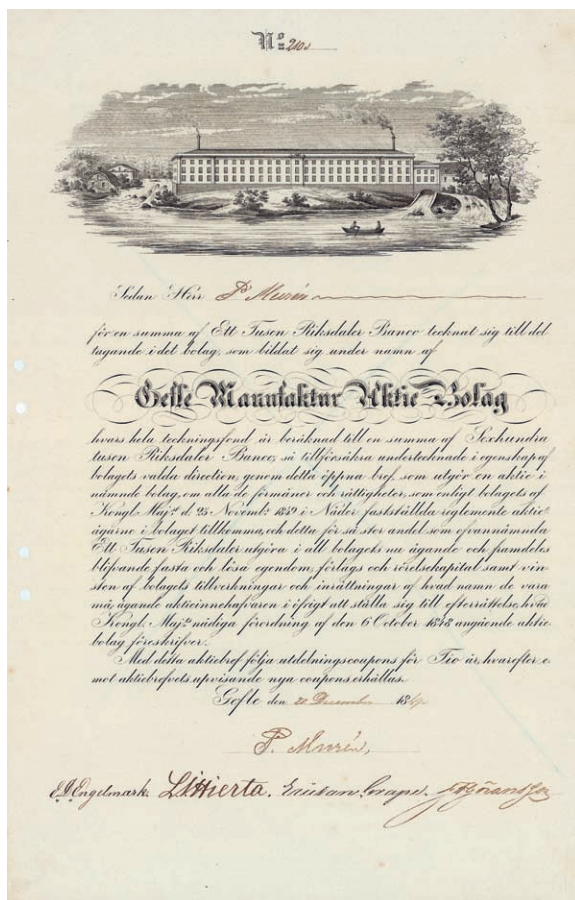 No 210
Sedan Herr P. Murén
för en summa af Ett Tusen Riksdaler Banco tecknat sig till del
tagande i det bolag, som bildat sig under namn af
Gefle Manufaktur Aktie Bolag
hvars hela teckningsfond är beräknad till en summa af Sexhundra
tusen Riksdaler Banco, så tillförsäkra undertecknade i egenskap af
bolagets valda direction, genom detta öppna bref, som utgör en aktie i
nämnde bolag, om alla de förmåner och rättigheter, som enligt bolagets af
Kongl. Maj:t d. 23 Novemb: 1849 i Nåder fastställda reglemente aktie-
ägarne i bolaget tillkomma, och detta för så stor andel som ofvannämnda
Ett Tusen Riksdaler utgöra i all bolagets nu ägande och framdeles
blifvande fasta och lösa egendom, förlags och rörelsekapital samt vin-
sten af bolagets tillverkningar och inrättningar af hvad namn de vara
må, ägande aktieinnehafvaren i öfrigt att ställa sig till efterrättelse, hvad
Kongl. Maj:ts nådiga förordning af den 6 October 1848 angående aktie-
bolag föreskrifver.
Med detta aktiebref följa utdelningscoupons för Tio år, hvarefter e-
mot aktiebrefvets uppvisande nya coupons erhållas.
Gefle den 20 December 18
P. Murén,
E. D. Engelmark. L J Hierta. Göransson